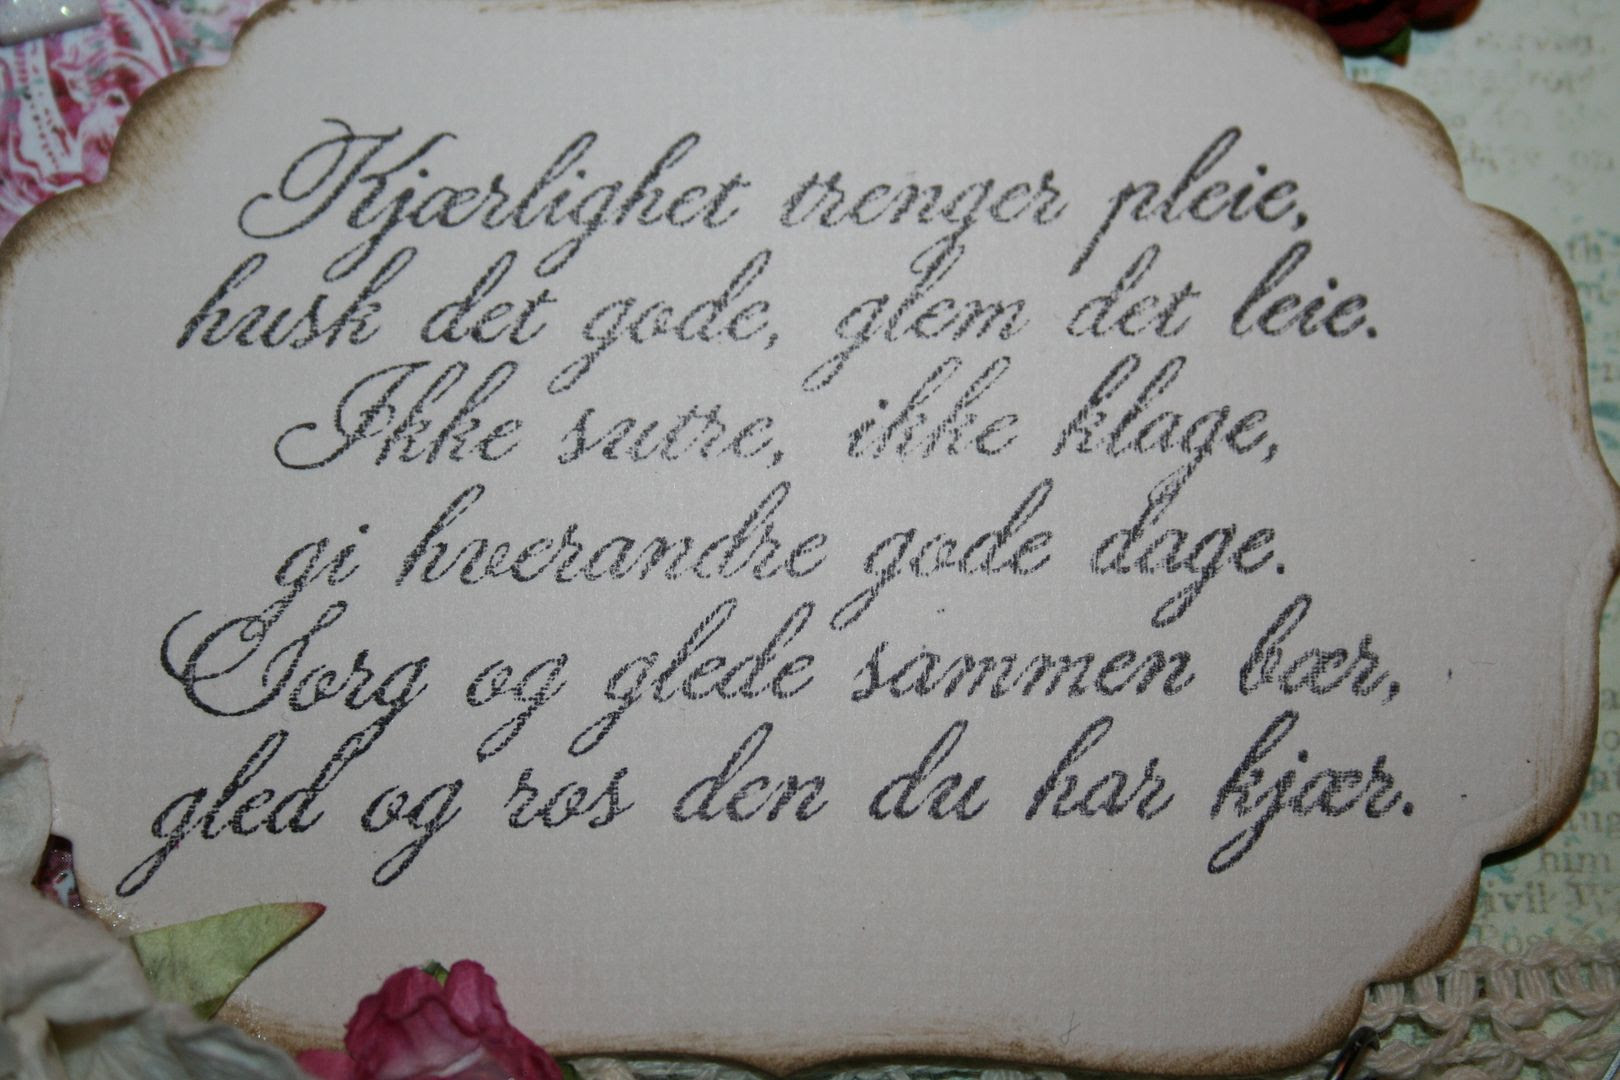 Kjærlighet trenger pleie,
husk det gode, glem det leie.
Ikke sutre, ikke klage,
gi hverandre gode dage.
Sorg og glede sammen bær,
gled og ros den du har kjær.
him